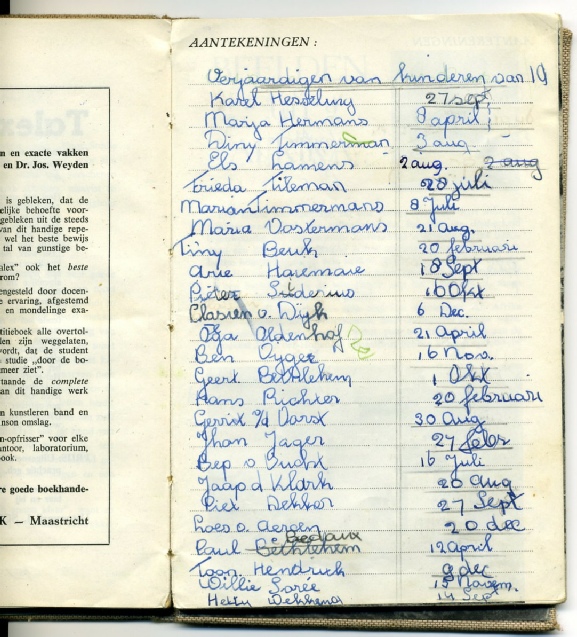 n en exacte vakken
en Dr. Jos. Weyden
is gebleken, dat de
elijke behoefte voor-
gebleken uit de steeds
van dit handige repe-
wel het beste bewijs
tal van gunstige be-
alex" ook het beste
rom?
engesteld door docen-
e ervaring, afgestemd
en mondelinge exa-
titieboek alle overtol-
den zijn weggelaten,
vordt, dat de student
studie „door de bo-
meer ziet".
taande de complete
an dit handige werk
n kunstleren band en
nson omslag.
n-opfrisser" voor elke
antoor, laboratorium,
ook.
re goede boekhande-
K — Maastricht
AANTEKENINGEN :
Verjaardigen van kinderen van 19
Karel Hesseling 27 sept
Marija Hermans 8 april
Diny Timmerman 3 aug
Els Lamens 2 aug. 2 aug
Frieda Tileman 28 juli
Marian Timmermans 8 Juli
Maria Oostermans 21 aug.
Tiny Beuk 20 februari
Arie Haremaie 18 Sept
Pieter 16 Okt
Clasien v. Dijk 6 Dec.
Olga Oldenhof 21 April
Ben 16 Nov.
Geert Bethlehem 1 Okt
Hans Richter 20 februari
Gerrit v/d Vorst 30 Aug
Jhan Jager 27 febr
Bep v 16 Juli
Jaap d Klark 20 aug
Piet Dekker 27 Sept
Loes v. Aergen 20 dec
Paul Bethlehem Bedaux 12 april
Toon Hendrick 9 dec
Willie Sorée 15 Novem.
Hetty 14 Sept